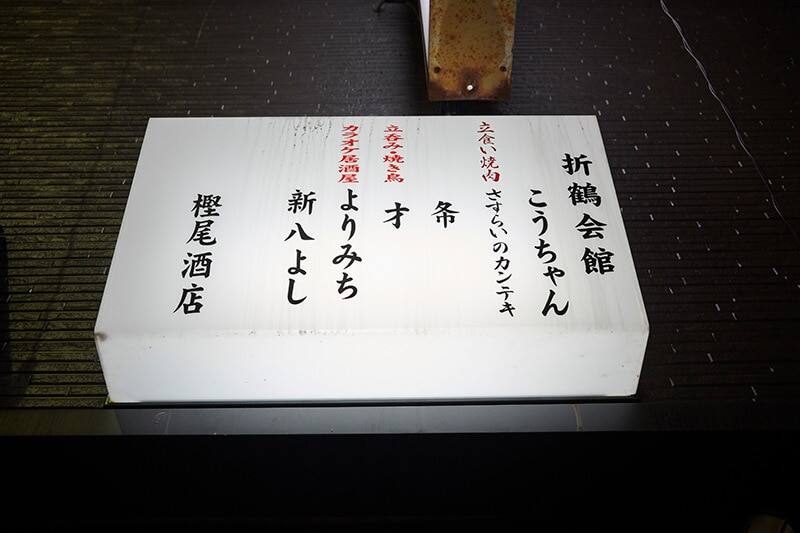 折鶴会館
こうちゃん
立食い焼肉
さすらいのカンテキ
夅
立呑み・焼き鳥
才
カラオケ居酒屋
よりみち
新八よし
樫尾酒店